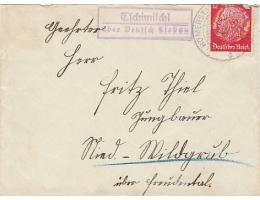 Tschimischl
über Deutsch Ließen
12
Deutsches Reich
Geehrter
Herr
Fritz Thiel
Jungbauer
Nied.-Wildgrub
über Freudental.